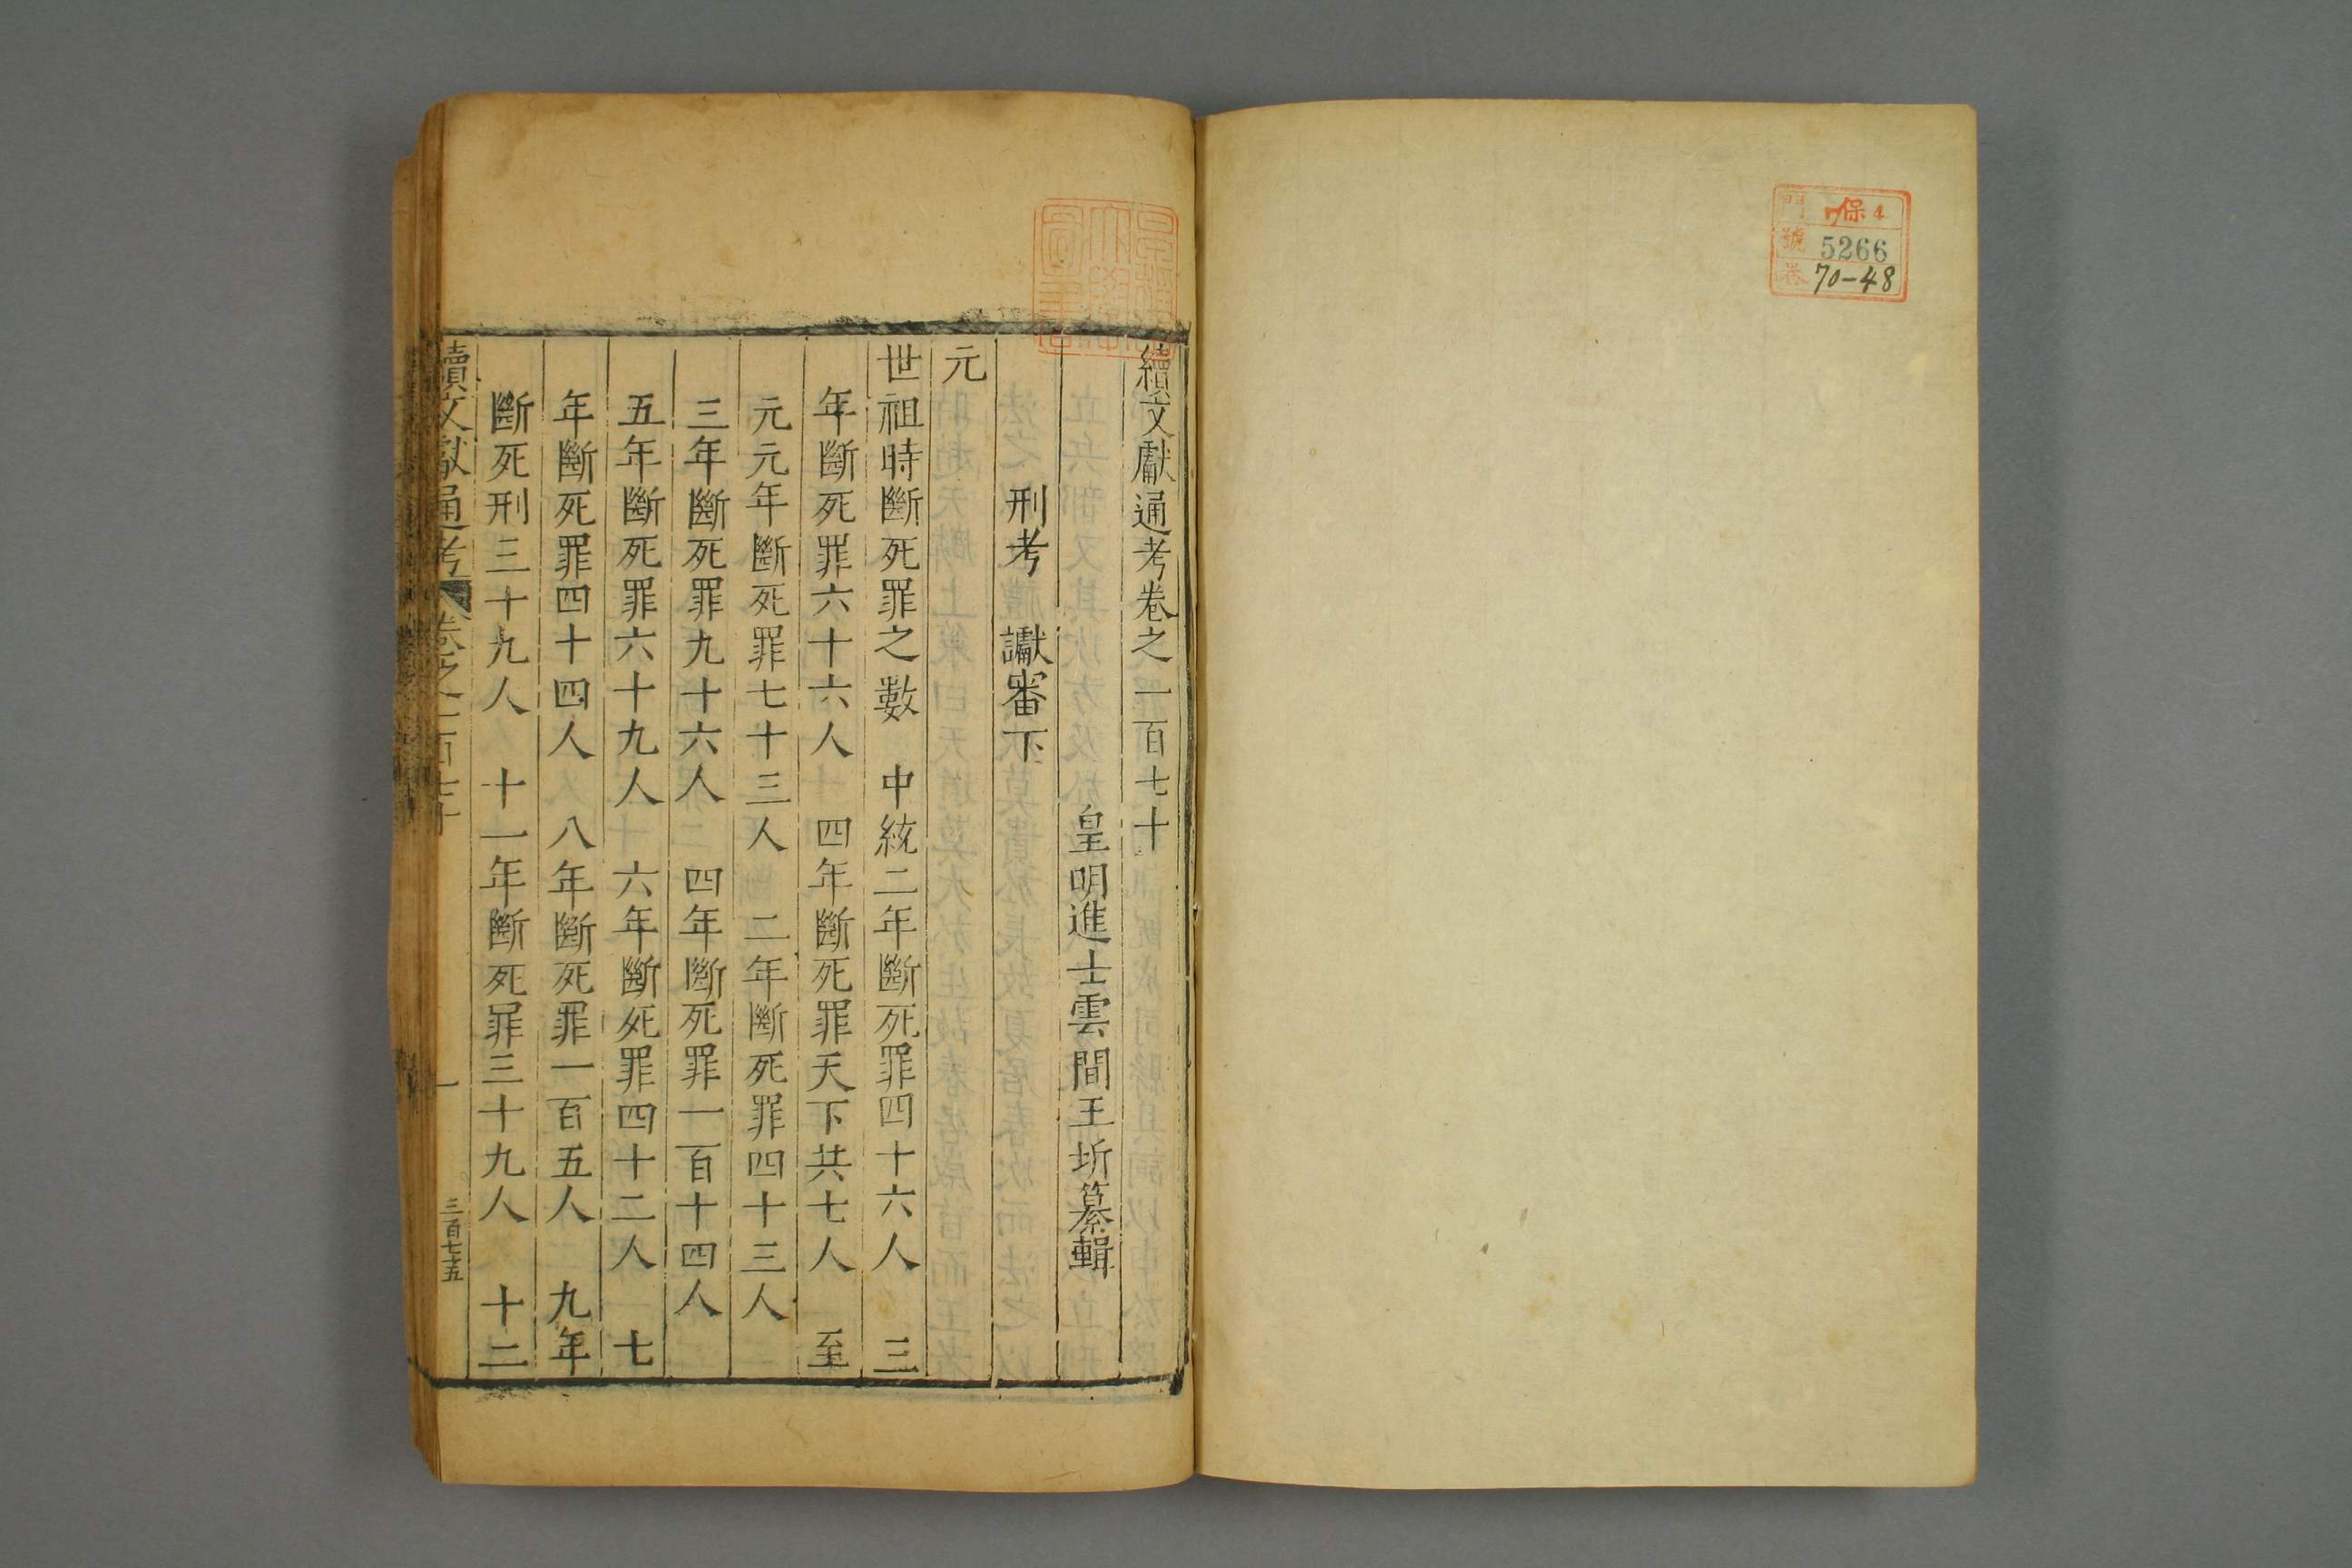 門 保4
號 5266
卷 70-48
續文獻通考卷之一百七十
皇明進士雲間王圻纂輯
刑考 讞審下
元
世祖時斷死罪之數 中統二年斷死罪四十六人 三
年斷死罪六十六人 四年斷死罪天下共七人 至
元元年斷死罪七十三人 二年斷死罪四十三人
三年斷死罪九十六人 四年斷死罪一百十四人
五年斷死罪六十九人 六年斷死罪四十二人 七
年斷死罪四十四人 八年斷死罪一百五人 九年
斷死刑三十九人 十一年斷死罪三十九人 十二
續文獻通考 卷之一百七十 一 三百七十五